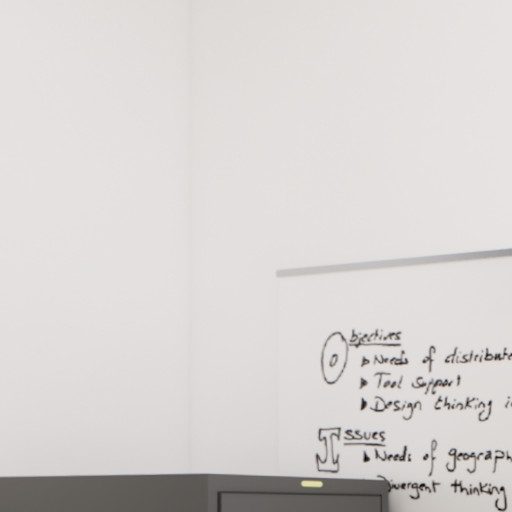 Objectives
Needs of distribute
Tool Support
Design thinking i
Issues
Needs of geograph
Divergent thinking